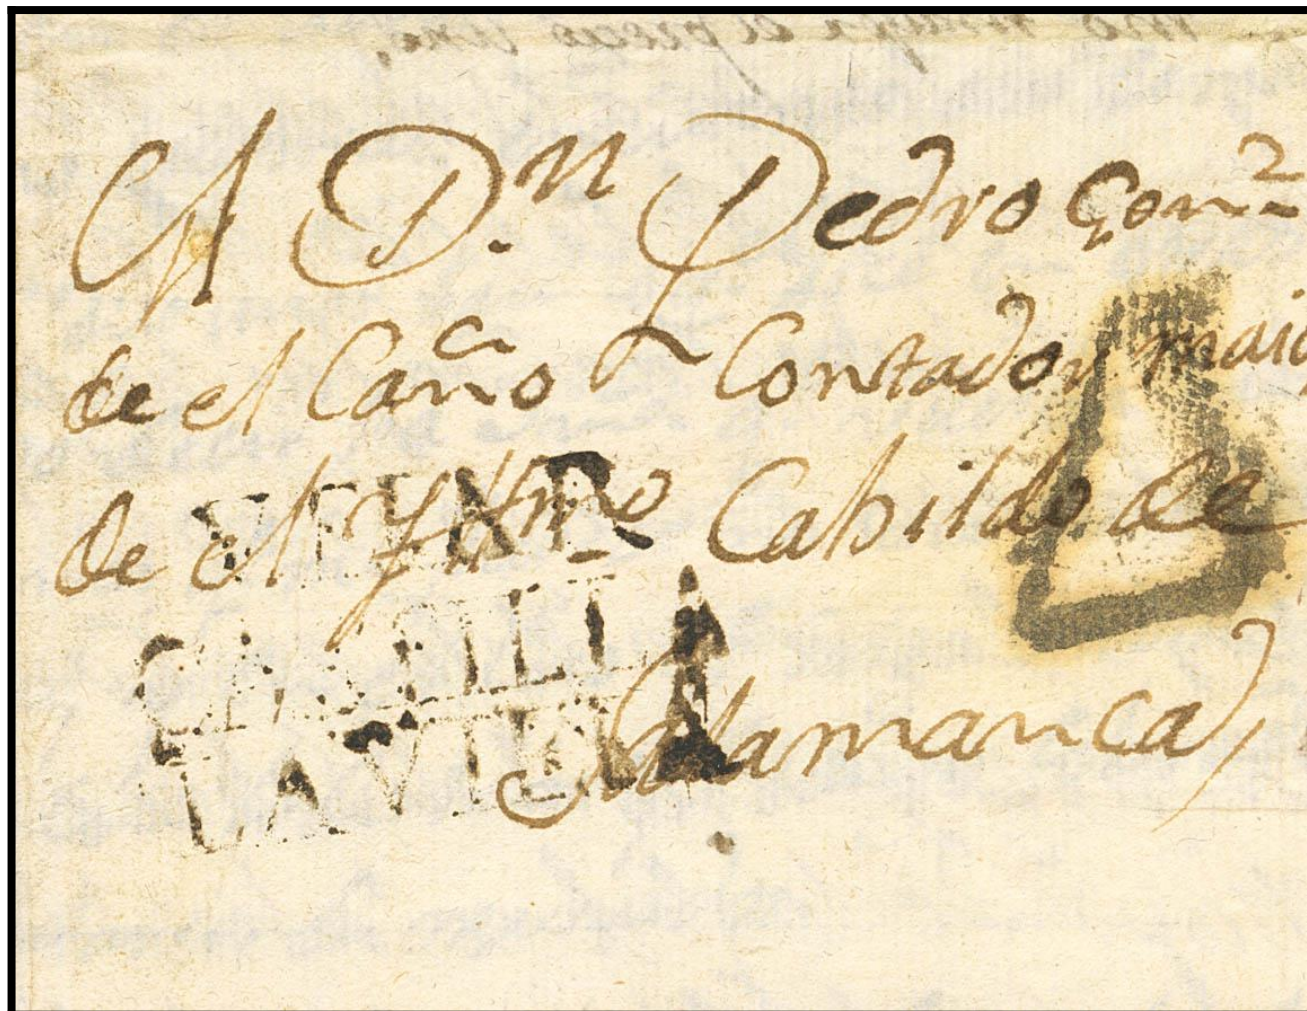 A D.n Pedro Gonz
de el Caño Contador maio
de el Yltmo Cabildo de
Salamanca,
VEJAR
CASTILLA
LAVIEJA
4